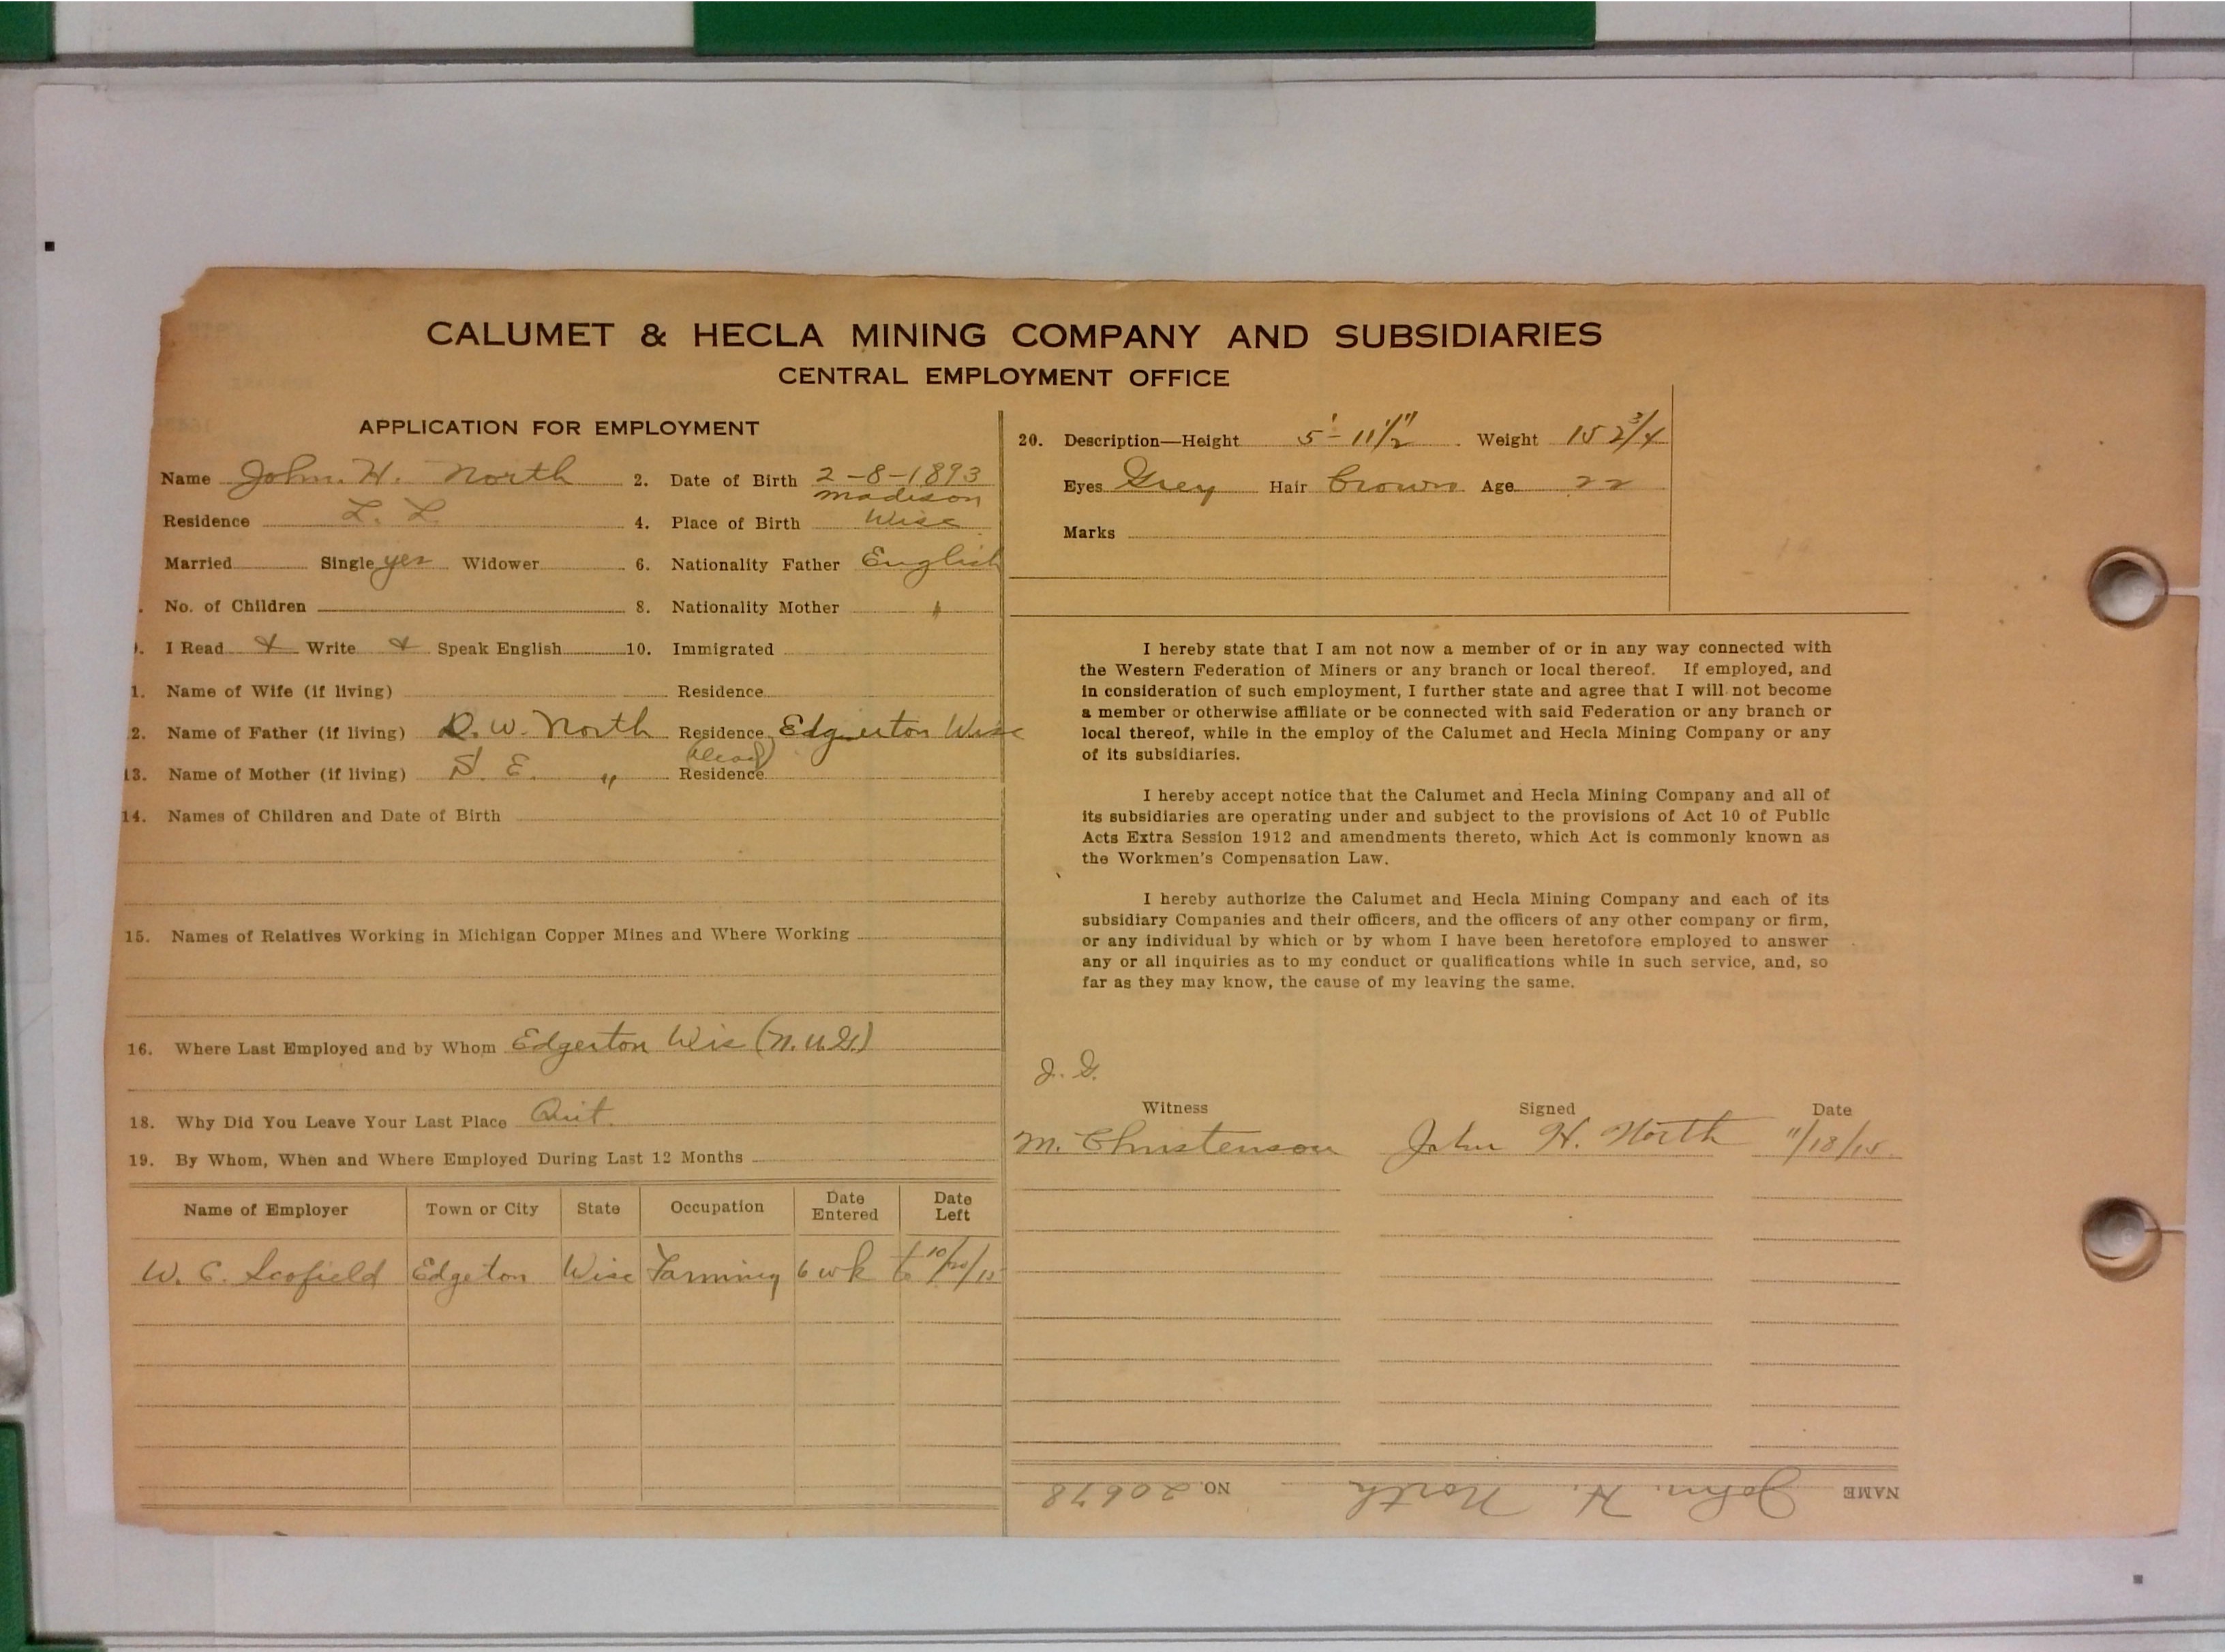 CALUMET & HECLA MINING COMPANY AND SUBSIDIARIES
CENTRAL EMPLOYMENT OFFICE
APPLICATION FOR EMPLOYMENT
Name John. H. North 2. Date of Birth 2-8-1893
Madison
Residence L. L. 4. Place of Birth Wisc
Married Single yes Widower 6. Nationality Father English
. No. of Children 8. Nationality Mother "
. I Read Write Speak English 10. Immigrated
1. Name of Wife (if living) Residence
2. Name of Father (if living) D. W. North Residence Edgerton Wisc
(dead)
13. Name of Mother (if living) S. E. " Residence
14. Names of Children and Date of Birth
15. Names of Relatives Working in Michigan Copper Mines and Where Working
16. Where Last Employed and by Whom Edgerton Wis
18. Why Did You Leave Your Last Place Quit.
19. By Whom, When and Where Employed During Last 12 Months
Name of Employer Town or City State Occupation Date Entered Date Left
W. C. Scofield Edgeton Wisc Farming 6 wk to 10/20/15
20. Description—Height 5'-11 1/2" Weight 152 3/4
Eyes Grey Hair Brown Age 22
Marks
I hereby state that I am not now a member of or in any way connected with
the Western Federation of Miners or any branch or local thereof. If employed, and
in consideration of such employment, I further state and agree that I will not become
a member or otherwise affiliate or be connected with said Federation or any branch or
local thereof, while in the employ of the Calumet and Hecla Mining Company or any
of its subsidiaries.
I hereby accept notice that the Calumet and Hecla Mining Company and all of
its subsidiaries are operating under and subject to the provisions of Act 10 of Public
Acts Extra Session 1912 and amendments thereto, which Act is commonly known as
the Workmen's Compensation Law.
I hereby authorize the Calumet and Hecla Mining Company and each of its
subsidiary Companies and their officers, and the officers of any other company or firm,
or any individual by which or by whom I have been heretofore employed to answer
any or all inquiries as to my conduct or qualifications while in such service, and, so
far as they may know, the cause of my leaving the same.
Witness Signed Date
M. Christenson John H. North 11/18/15
NAME John. H. North NO. 20678